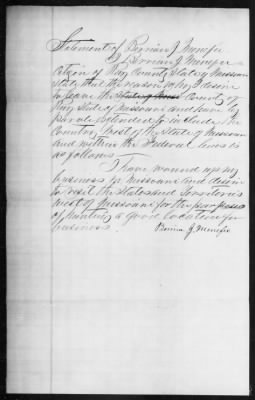 Statement of Bynian J. Menefee
I Bynian J. Menefee
Citizen of Ray County State of Missouri
State that the reason why I desire
to leave the County of
Ray State of Missouri and have my
parole extended so include the
Country West of the State of Missouri
and within the Federal lines is
as follows
I have wound up my
business in Missouri and desire
to visit the States and Territories
West of Missouri for the purpose
of hunting a good location for
business.
Menefee